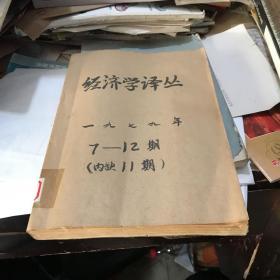 经济学译丛
一九七九年
7—12期
(内缺11期)